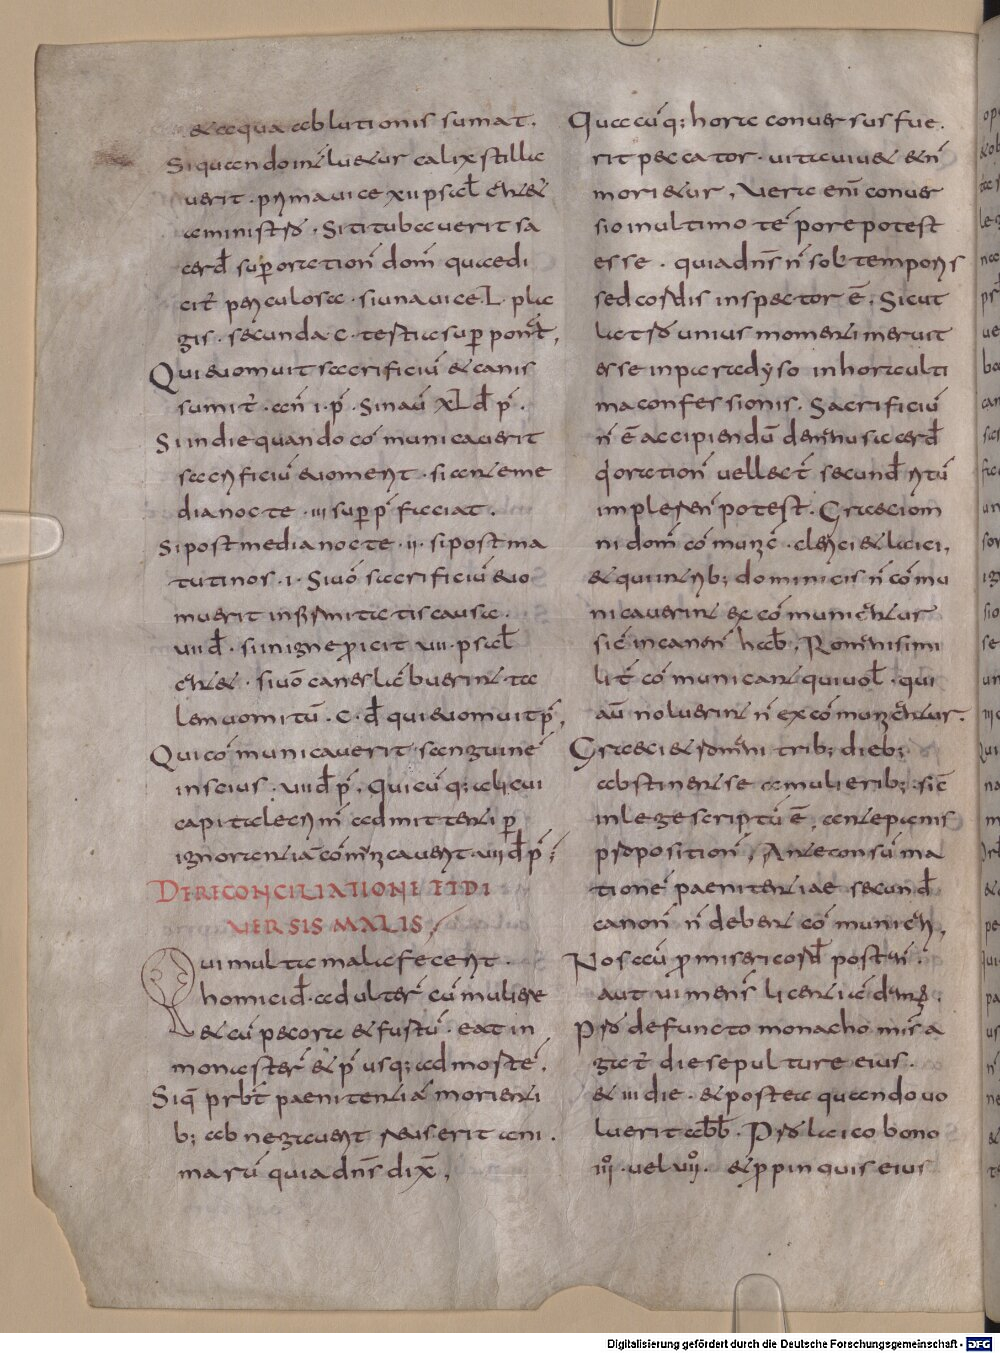 & aqua ablutionis sumat.
Siquando inf luetur calix stilla
uerit · prima uice xii psal can&
aministro · Si titubauerit sa
cerd super orationē domī quaedi
citˀ periculosa · siuna uice L · pla
gis · secunda · C · tertia super ponat,
Qui euomuit sacrificiū & canis
sumit · ann̄ · i · p̄ · Sinaū xL d p̄ .
Si in die quando cōmunicauerit
sacrificiū euomerit · si ante me
dia nocte · iii super p̄ faciat .
Si post media nocte · ii · si post ma
tutinos · i · Si uō sacrificiū euo
muerit infirmitatis causa .
uii d · si in igne proicit uiii · psal
cant& · si uō canes lāb uerint ta
lem uomitū · C · d qui euomuit p̄,
Qui cōmunicauerit sanguinē
inscius · uiii d p̄ . Qui cūq; alicui
capitale crimī admittenti per
ignorantiā cōmunicauerit uii d p̄;
DE RECONCILIATIONE ET DI
UERSIS MALIS,
Qui multa mala fecerit .
homicid · adulterˉ cū muliere
& cū pecora & furtū · eat in
monasterˉ & p̄ usq; ad mortē.
Siq̄ prbt̄ paenitentiā morienti
b; ab negauerit reus erit ani .
marū quia dn̄s dix̄,
Quacūq; hora conuersus fue.
rit peccator · uita uiu& & n̄
mori&ur, Uera enī conuer
sio in ultimo tēpore potest
esse . quia dn̄s n̄ sol temporis
sed cordis inspector ē. Sicut
latro unius momenti meruit
esse in paradyso in hora ulti
ma confessionis. Sacrificiū
n̄ ē accipiendū de manu sacerd
q orationē uel lect̄ secund ritū
implere n̄ potest. Greci om
ni domī cōmunicē · clerici & laici,
& qui in trib; dominicis n̄ cōmu
nicauerint excōmunicentur
sic in canon hab. Romani simi
lit̄ cōmunicant qui uol · qui
aū noluerint n̄ excōmunicantur.
Greci & romani trib; dieb;
abstinent se amulierib; sic̄
in lege scriptū ē, ante panis
propositionē, Ante consūma
tionē paenitentiae secund
canonē n̄ debent cōmunicari,
Nos aū pro misericord post anī .
aut ui mens licentiā damus .
Pro defuncto monacho misa
gatˉ die sepulture eius .
& iii die · & postea quando uo
luerit abb · Pro laico bono
iiiº · uel uiiº . & propinquis eius
Digitalisierung gefördert durch die Deutsche Forschungsgemeinschaft - DFG